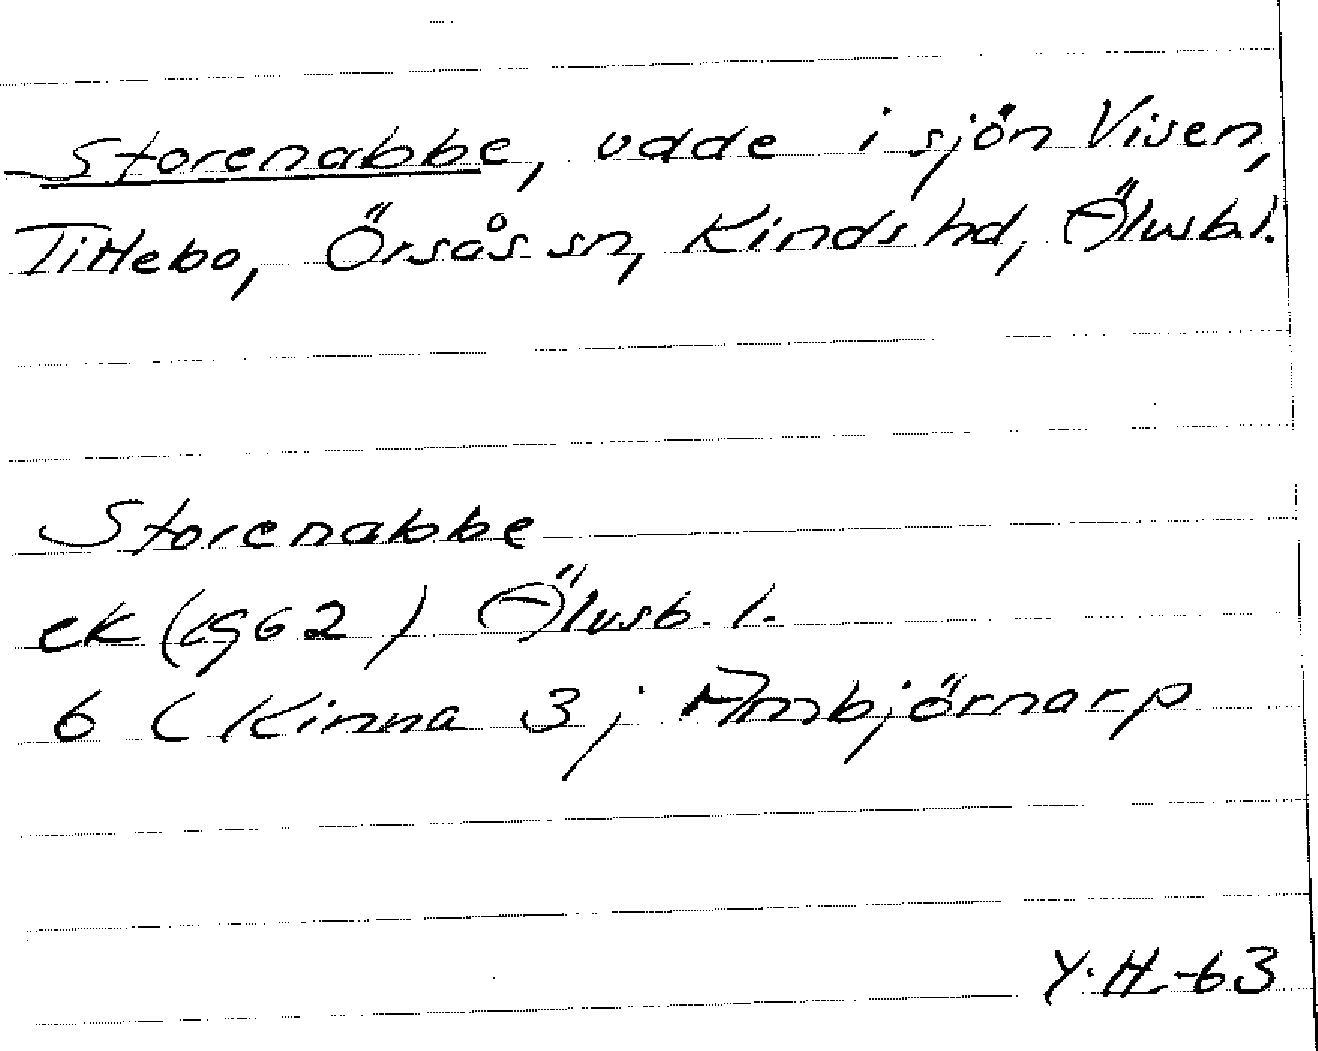 Storenabbe, udde i sjön Visen,
Tittebo, Örsås sn, Kinds hd, Älvsb.l.
Storenabbe
ek (1962) Älvsb. l.
6 ( Kinna 3; Ambjörnarp
Y.H.-63